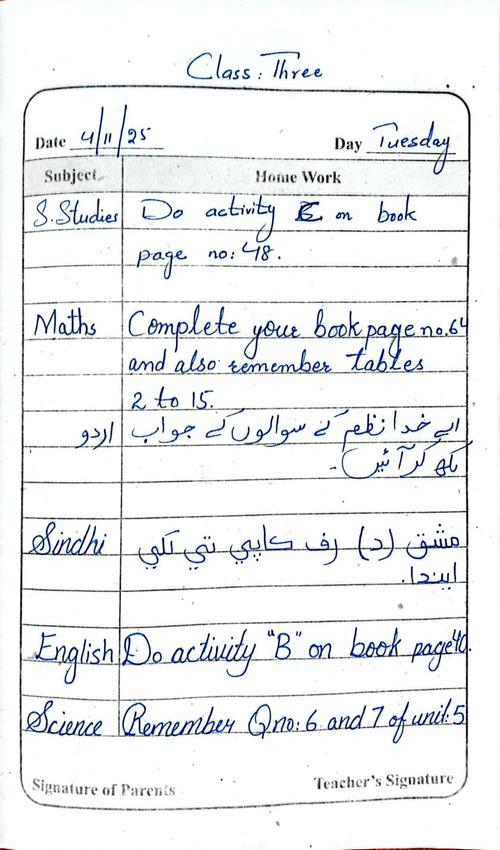 Class: Three
Date 4/11/25 Day Tuesday
Subject Home Work
S.Studies Do activity E on book
page no: 48.
Maths Complete your book page no. 64
and also remember tables
2 to 15.
اردو اے خدا نظم کے سوالوں کے جواب
لکھ کر آئیں۔
Sindhi مشق (د) رف کاپي تي لکي
ايندا.
English Do activity "B" on book page 40.
Science Remember Q no: 6 and 7 of unit: 5
Signature of Parents Teacher's Signature